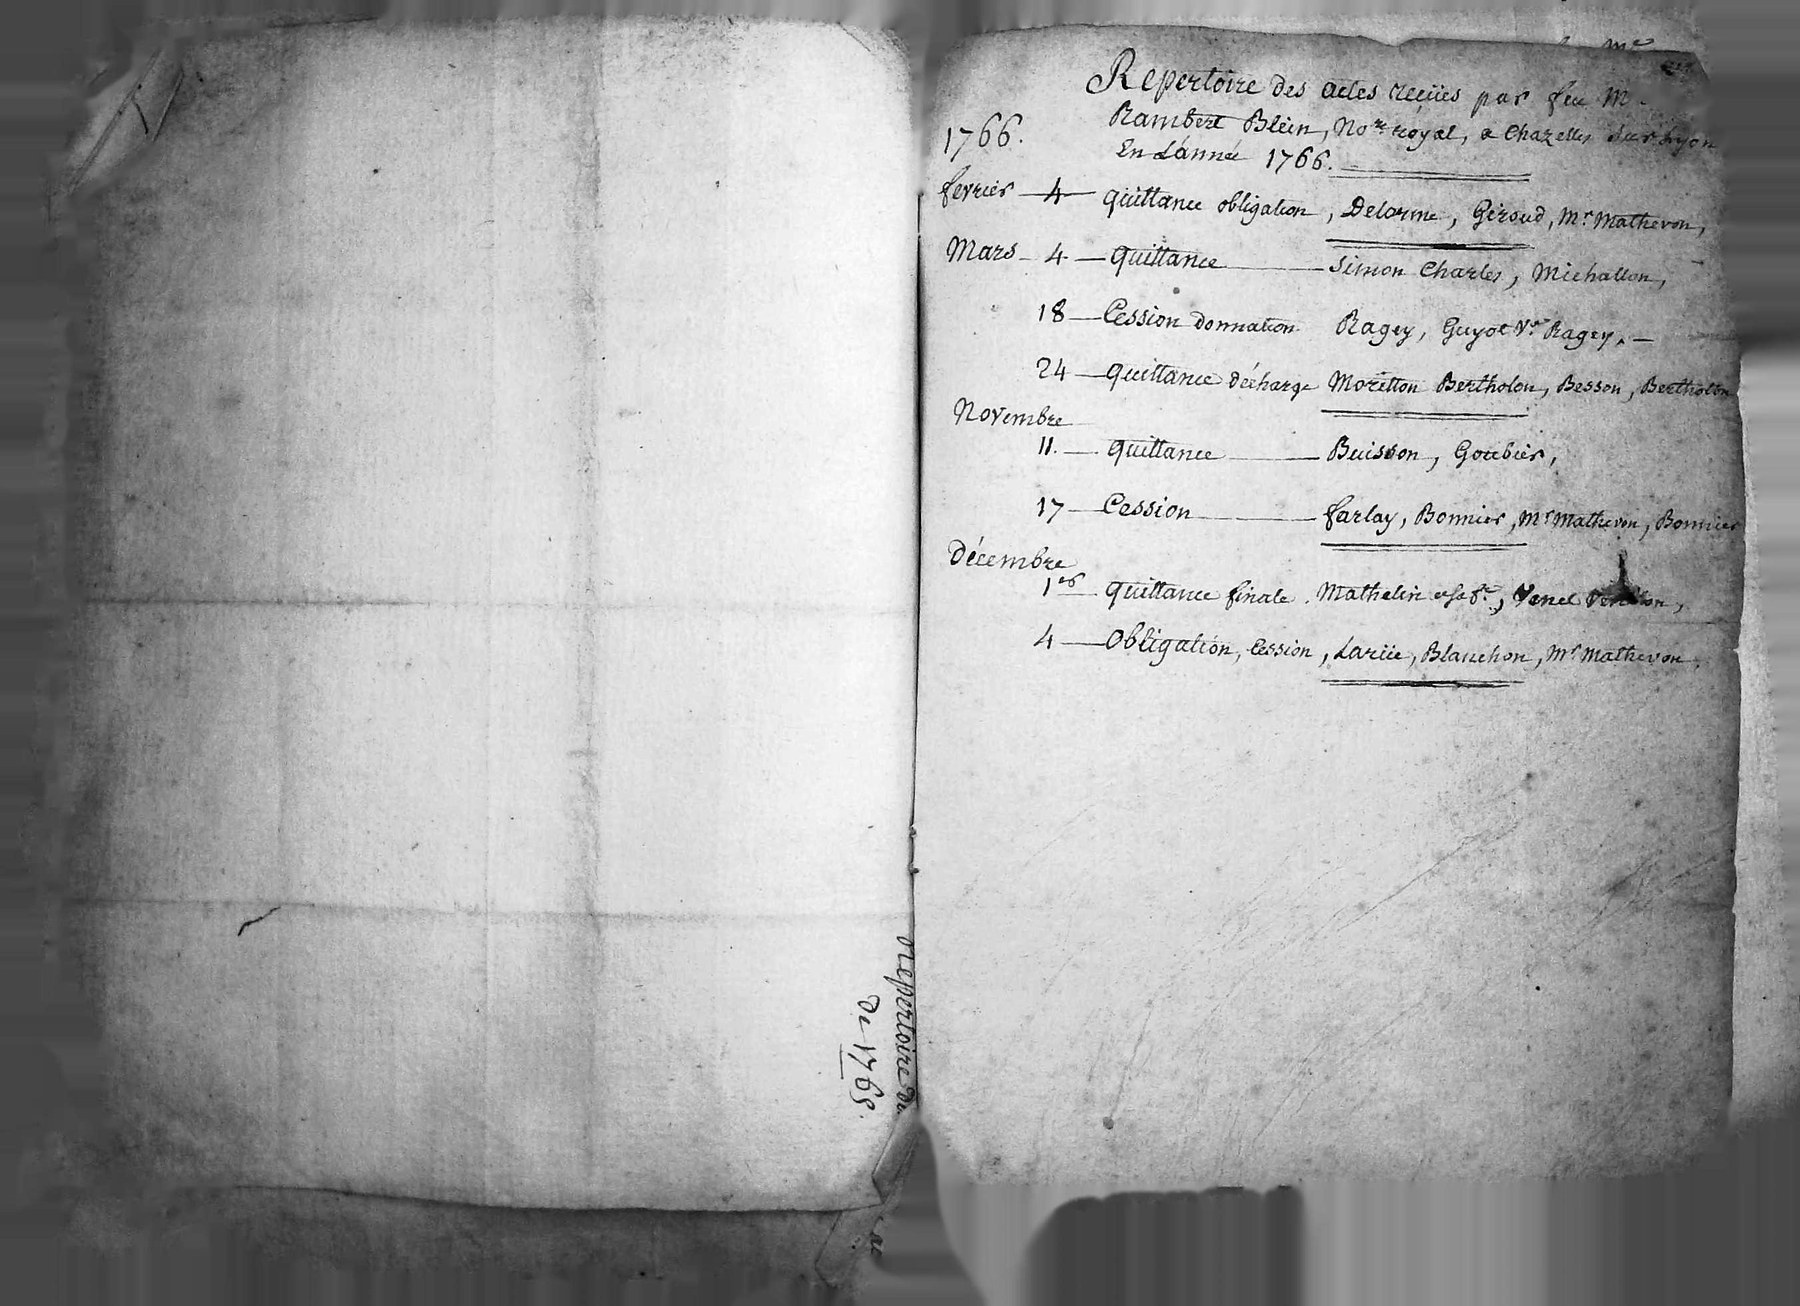 Repertoire de
de 1765.
Repertoire des actes reçües par feu M
1766.
Rambert Blein, No.re royal, a Chazelles sur Lyon
En L'année 1766.
fevrier 4 quittance obligation, Delorme, Giroud, Mr Mathevon,
Mars 4 quittance Simon Charles, Michallon,
18 Cession donnation Ragey, Guyot Ve Ragey.
24 quittance décharge Moretton Bertholon, Besson, Bertholon
Novembre
11. quittance Buisson, Goubier,
17 Cession farlay, Bonnier, Mr Mathevon, Bonnier
Décembre
1er quittance finale. Mathelin
4 Obligation, Cession, Larüe, Blanchon, Mr Mathevon.